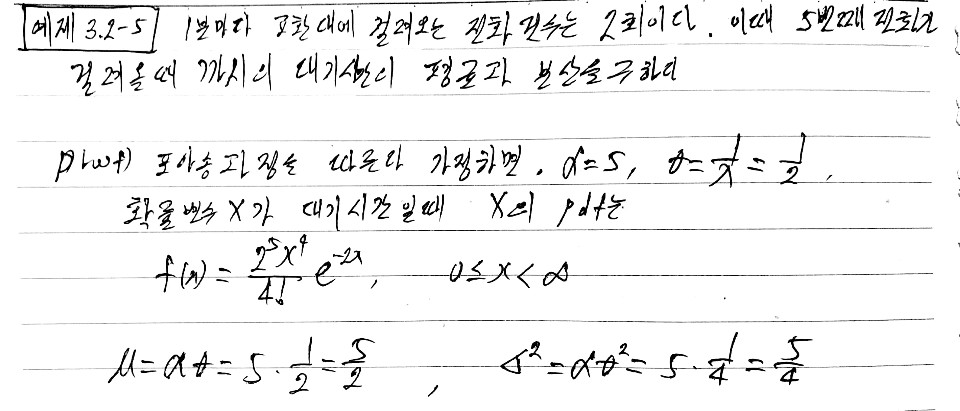 예제 3.2-5 1분마다 교환대에 걸려오는 전화 건수는 2회이다. 이때 5번째 전화가
걸려올때 까지의 대기시간의 평균과 분산을 구하라
proof) 포아송과정을 따른다 가정하면. α=5, θ=1/λ=1/2,
확률변수 X가 대기시간일때 X의 pdf는
f(x) = 2⁵x⁴/4! e⁻²ˣ, 0≤x<∞
μ=αθ=5·1/2=5/2, σ²=αθ²=5·1/4=5/4